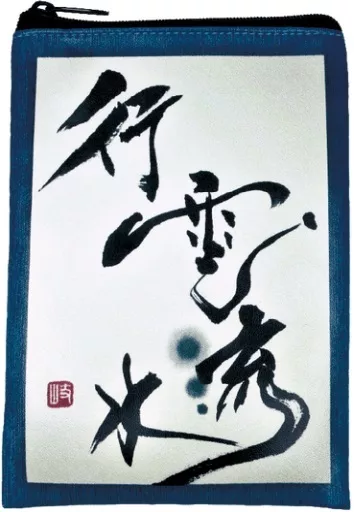 行雲流水
岐